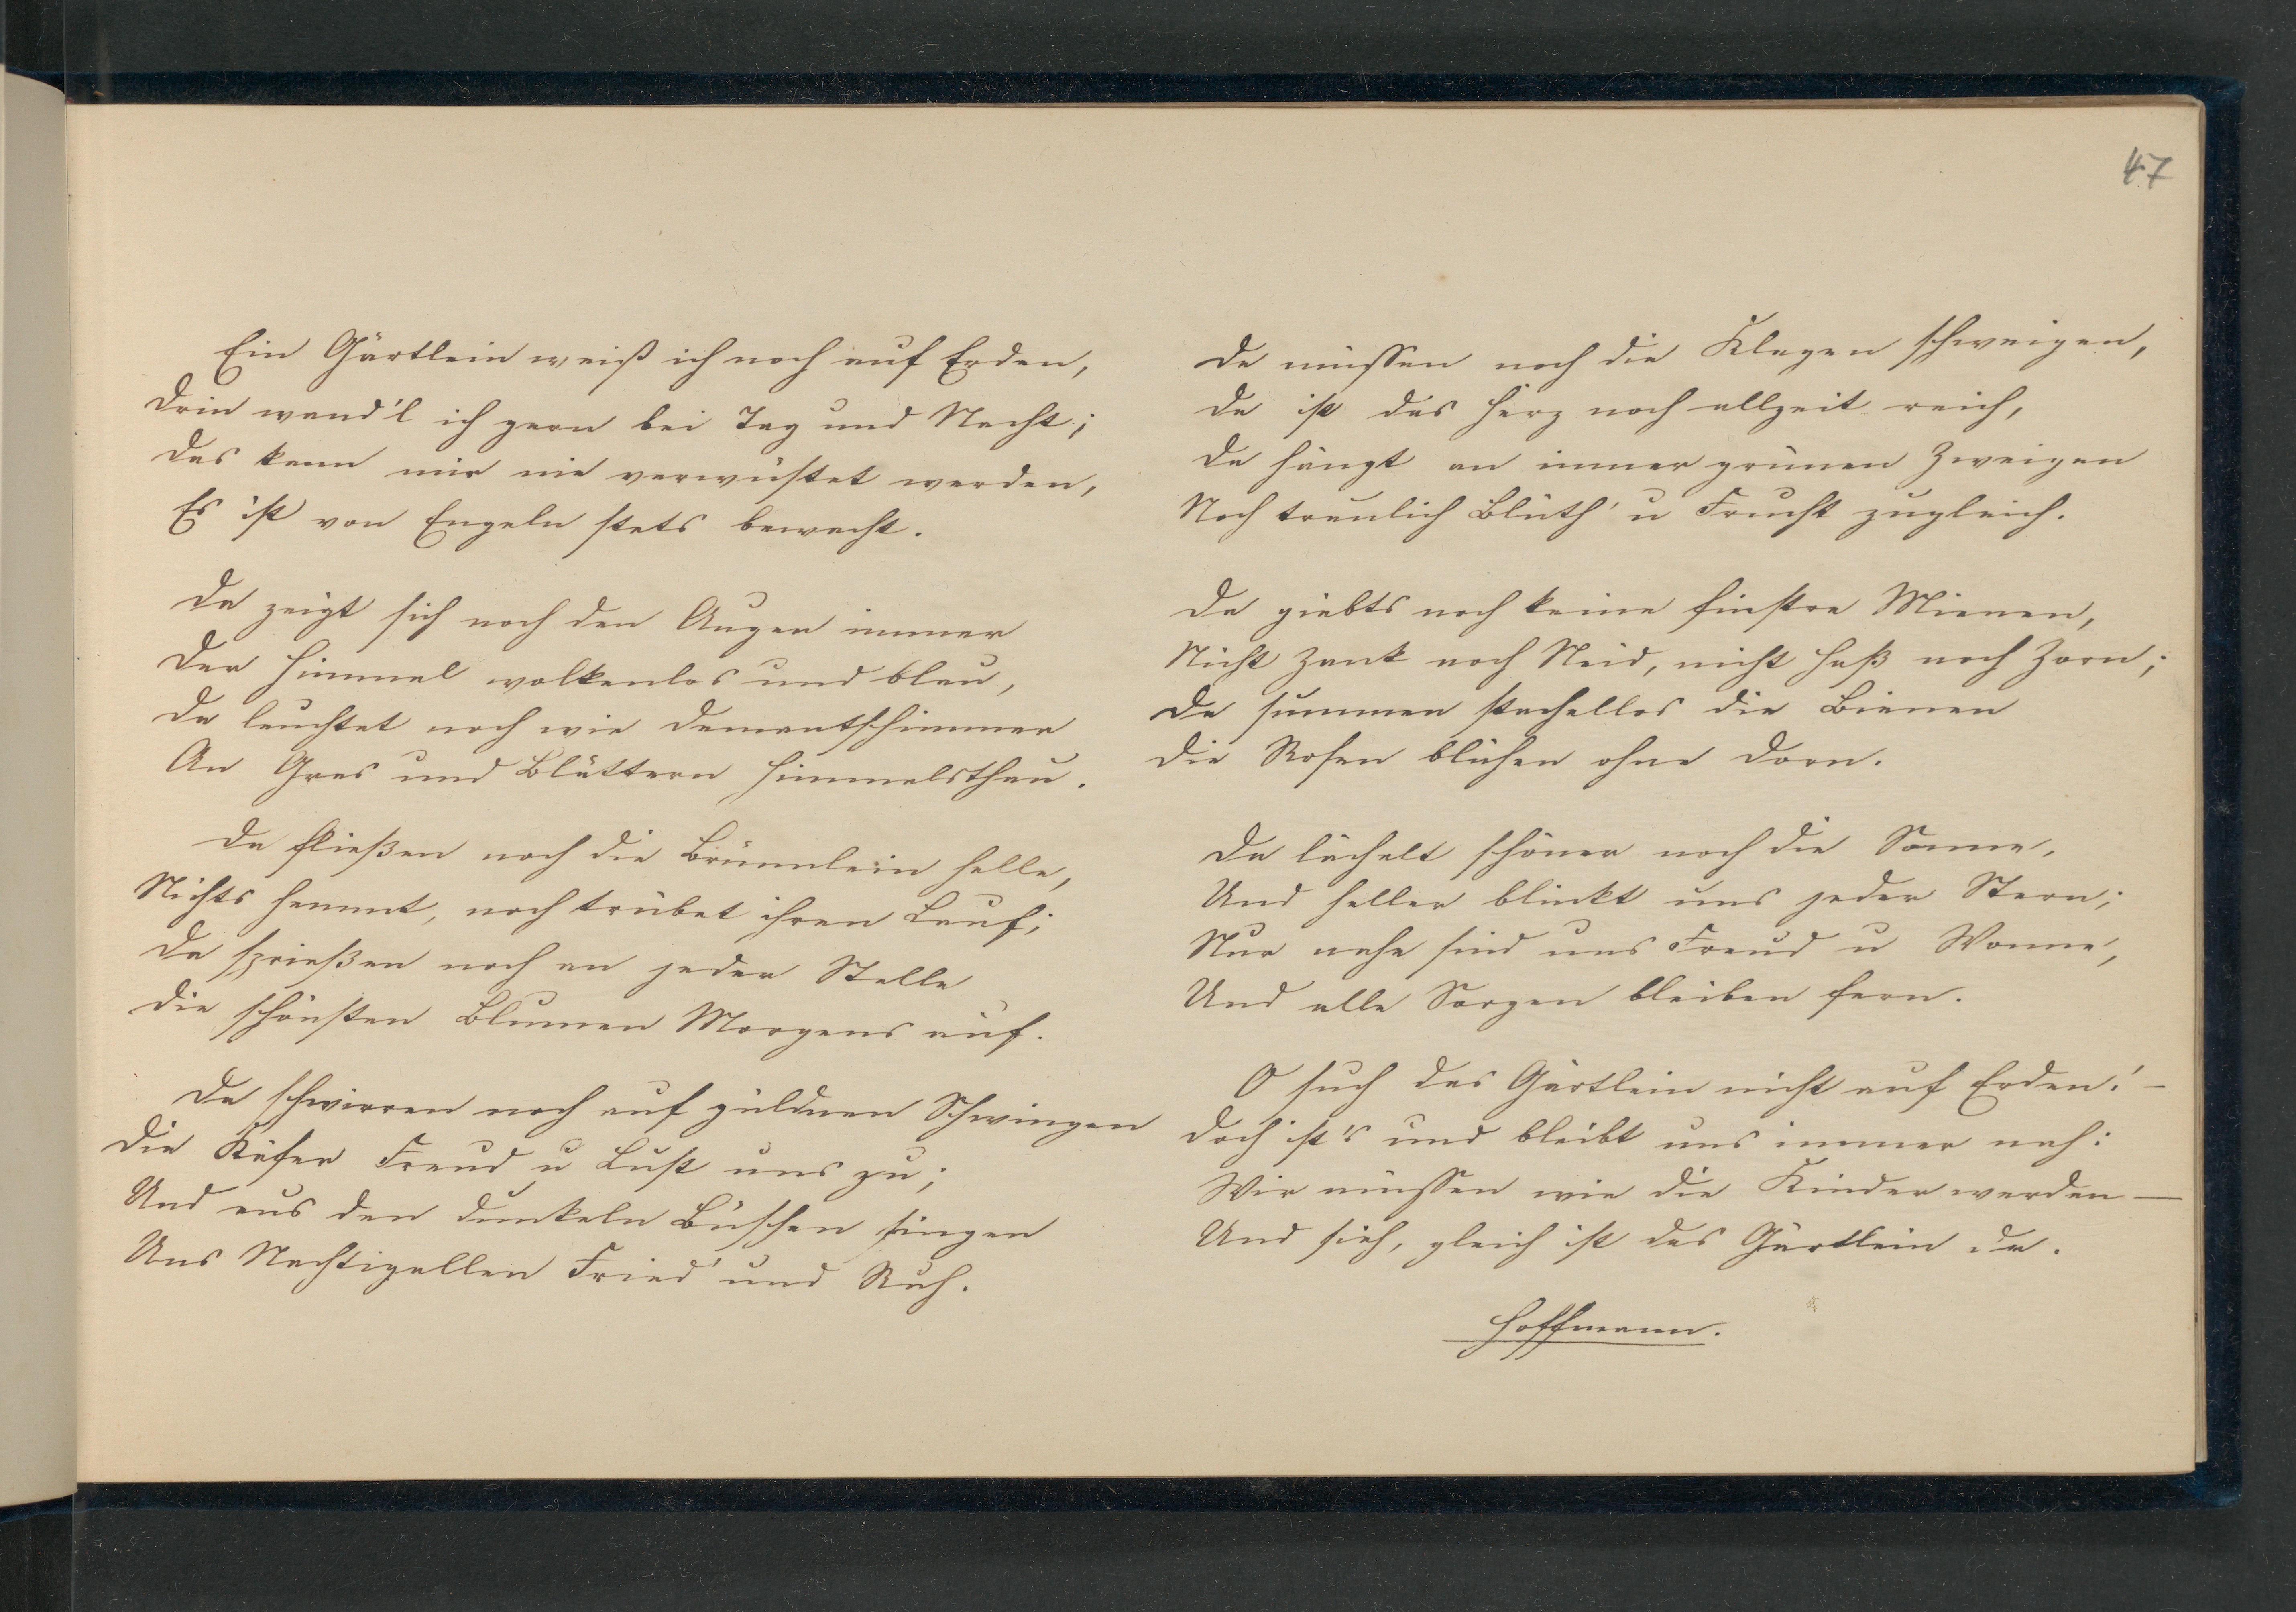 47
Ein Gärtlein weiß ich noch auf Erden,
Drin wand'l ich gern bei Tag und Nacht;
Das kann mir nie verwüstet werden,
Es ist von Engeln stets bewacht.
Da zeigt sich noch den Augen immer
Der Himmel wolkenlos und blau,
Da leuchtet noch wie Demantschimmer
An Gras und Blättern Himmelsthau.
Da fließen noch die Brünnlein helle,
Nichts hemmt, noch trübet ihren Lauf;
Da sprießen noch an jeder Stelle
Die schönsten Blumen Morgens auf.
Da schwirren noch auf güldnen Schwingen
Die Käfer Freud u Lust uns zu;
Und aus den dunkeln Büschen singen
Uns Nachtigallen Fried' und Ruh.
Da müssen noch die Klagen schweigen,
Da ist das Herz noch allzeit reich,
Da hängt an immer grünen Zweigen
Noch treulich Blüth' u Frucht zugleich.
Da giebts noch keine finstre Mienen,
Nicht Zank noch Neid, nicht Haß noch Zorn;
Da summen stachellos die Bienen
Die Rosen blühen ohne Dorn.
Da lächelt schöner noch die Sonne,
Und heller blinkt uns jeder Stern;
Nur nahe sind uns Freud u Wonne,
Und alle Sorgen bleiben fern.
O such das Gärtlein nicht auf Erden! –
Doch ist's und bleibt uns immer nah:
Wir müssen wie die Kinder werden —
Und sieh, gleich ist das Gärtlein da.
Hoffmann.